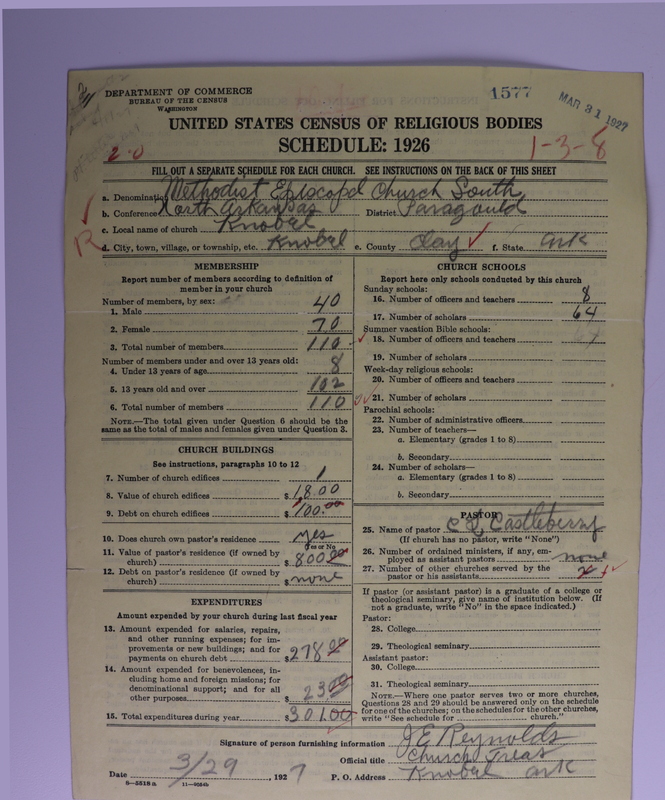 DEPARTMENT OF COMMERCE
BUREAU OF THE CENSUS
WASHINGTON
1577
MAR 31 1927
UNITED STATES CENSUS OF RELIGIOUS BODIES
SCHEDULE: 1926
2-0
1-3-8
FILL OUT A SEPARATE SCHEDULE FOR EACH CHURCH. SEE INSTRUCTIONS ON THE BACK OF THIS SHEET
a. Denomination Methodist Episcopal Church South
b. Conference North Arkansas District Paragould
c. Local name of church Knobel
R
d. City, town, village, or township, etc. Knobel e. County Clay f. State Ark
MEMBERSHIP
Report number of members according to definition of
member in your church
Number of members, by sex:
1. Male 40
2. Female 70
3. Total number of members 110
Number of members under and over 13 years old:
4. Under 13 years of age 8
5. 13 years old and over 102
6. Total number of members 110
NOTE.—The total given under Question 6 should be the
same as the total of males and females given under Question 3.
CHURCH BUILDINGS
See instructions, paragraphs 10 to 12
7. Number of church edifices 1
8. Value of church edifices $1,800
9. Debt on church edifices $100.00
10. Does church own pastor's residence yes
Yes or No
11. Value of pastor's residence (if owned by
church) $800.00
12. Debt on pastor's residence (if owned by
church) $none
EXPENDITURES
Amount expended by your church during last fiscal year
13. Amount expended for salaries, repairs,
and other running expenses; for im-
provements or new buildings; and for
payments on church debt $278.00
14. Amount expended for benevolences, in-
cluding home and foreign missions; for
denominational support; and for all
other purposes $23.00
15. Total expenditures during year $301.00
CHURCH SCHOOLS
Report here only schools conducted by this church
Sunday schools:
16. Number of officers and teachers 8
17. Number of scholars 64
Summer vacation Bible schools:
18. Number of officers and teachers
19. Number of scholars
Week-day religious schools:
20. Number of officers and teachers
21. Number of scholars
Parochial schools:
22. Number of administrative officers
23. Number of teachers—
a. Elementary (grades 1 to 8)
b. Secondary
24. Number of scholars—
a. Elementary (grades 1 to 8)
b. Secondary
PASTOR
25. Name of pastor Castleberry
(If church has no pastor, write "None")
26. Number of ordained ministers, if any, em-
ployed as assistant pastors none
27. Number of other churches served by the
pastor or his assistants
If pastor (or assistant pastor) is a graduate of a college or
theological seminary, give name of institution below. (If
not a graduate, write "No" in the space indicated.)
Pastor:
28. College
29. Theological seminary
Assistant pastor:
30. College
31. Theological seminary
NOTE.—Where one pastor serves two or more churches,
Questions 28 and 29 should be answered only on the schedule
for one of the churches; on the schedules for the other churches,
write "See schedule for church."
Signature of person furnishing information J E Reynolds
Official title Church Treas
Date 3/29, 1927 P. O. Address Knobel Ark